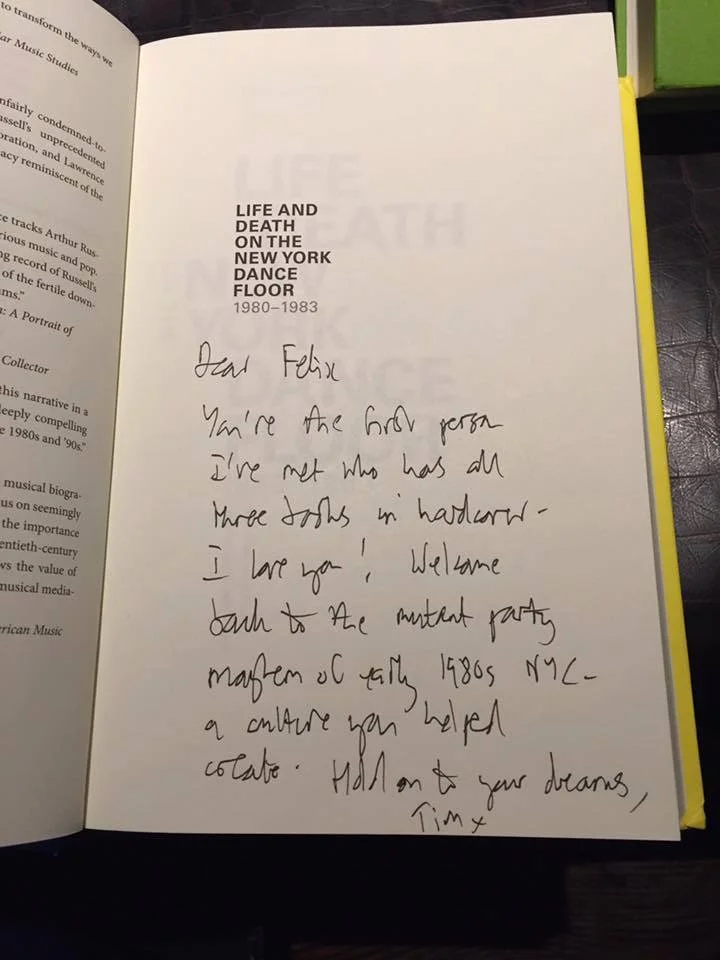 to transform the ways we
ar Music Studies
nfairly condemned-to-
ussell's unprecedented
oration, and Lawrence
acy reminiscent of the
ce tracks Arthur Rus-
rious music and pop.
ng record of Russell's
of the fertile down-
ms."
n: A Portrait of
Collector
this narrative in a
deeply compelling
e 1980s and '90s."
musical biogra-
us on seemingly
the importance
entieth-century
ws the value of
musical media-
erican Music
LIFE AND
DEATH
ON THE
NEW YORK
DANCE
FLOOR
1980–1983
Dear Felix
You're the first person
I've met who has all
three books in hardcover -
I love you! Welcome
back to the mutant party
mayhem of early 1980s NYC -
a culture you helped
create. Hold on to your dreams,
Tim x